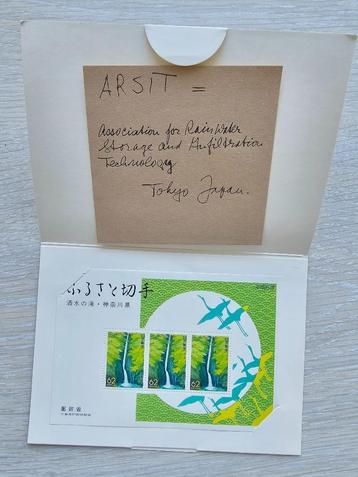 ARSIT =
Association for RainWater
Storage and Infiltration
Technology
Tokyo Japan.
ふるさと切手
酒水の滝・神奈川県
62
62
62
郵政省